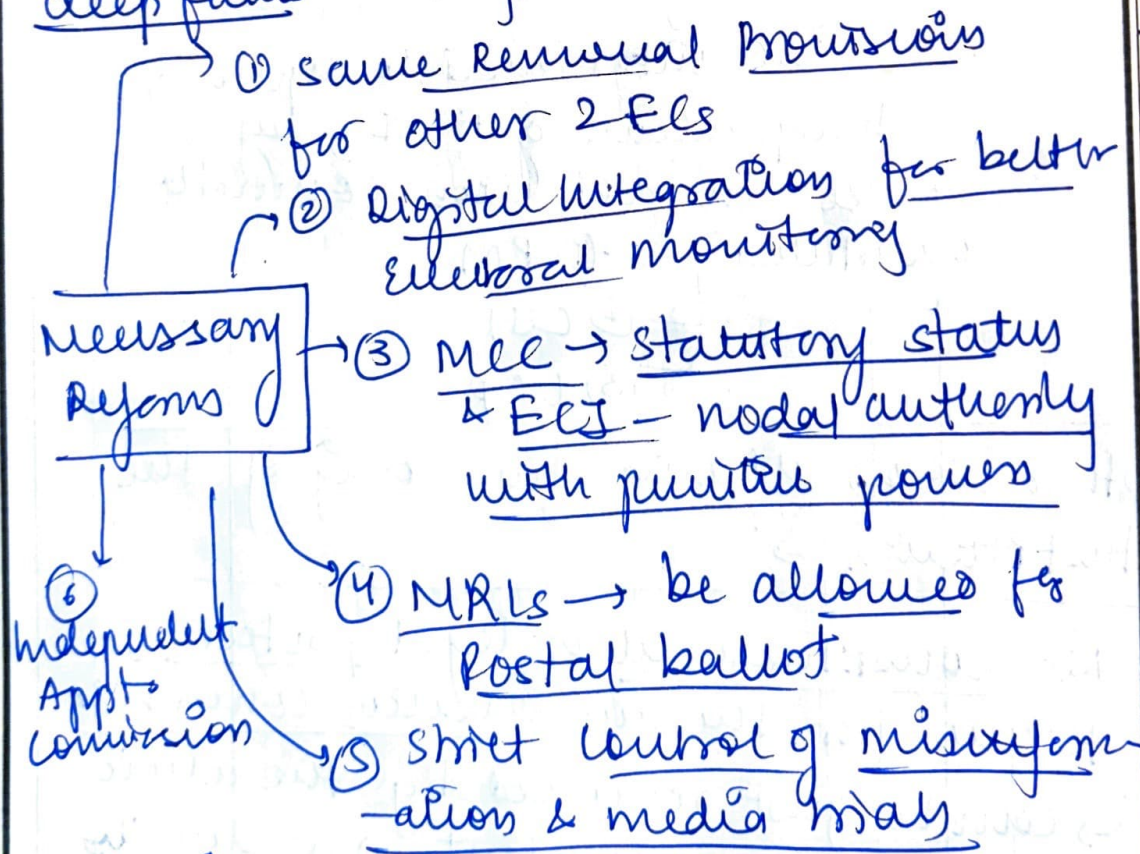 deep
① Same Removal Provisions
for other 2 ECs
② Digital Integration for better
Electoral monitoring
Necessary
Reforms
③ MCC → statutory status
& ECI - nodal authority
with punitive powers
④ NRIs → be allowed for
Postal ballot
⑤ strict control of misinform-
-ation & media trials
⑥
Independent
Appt.
Commission